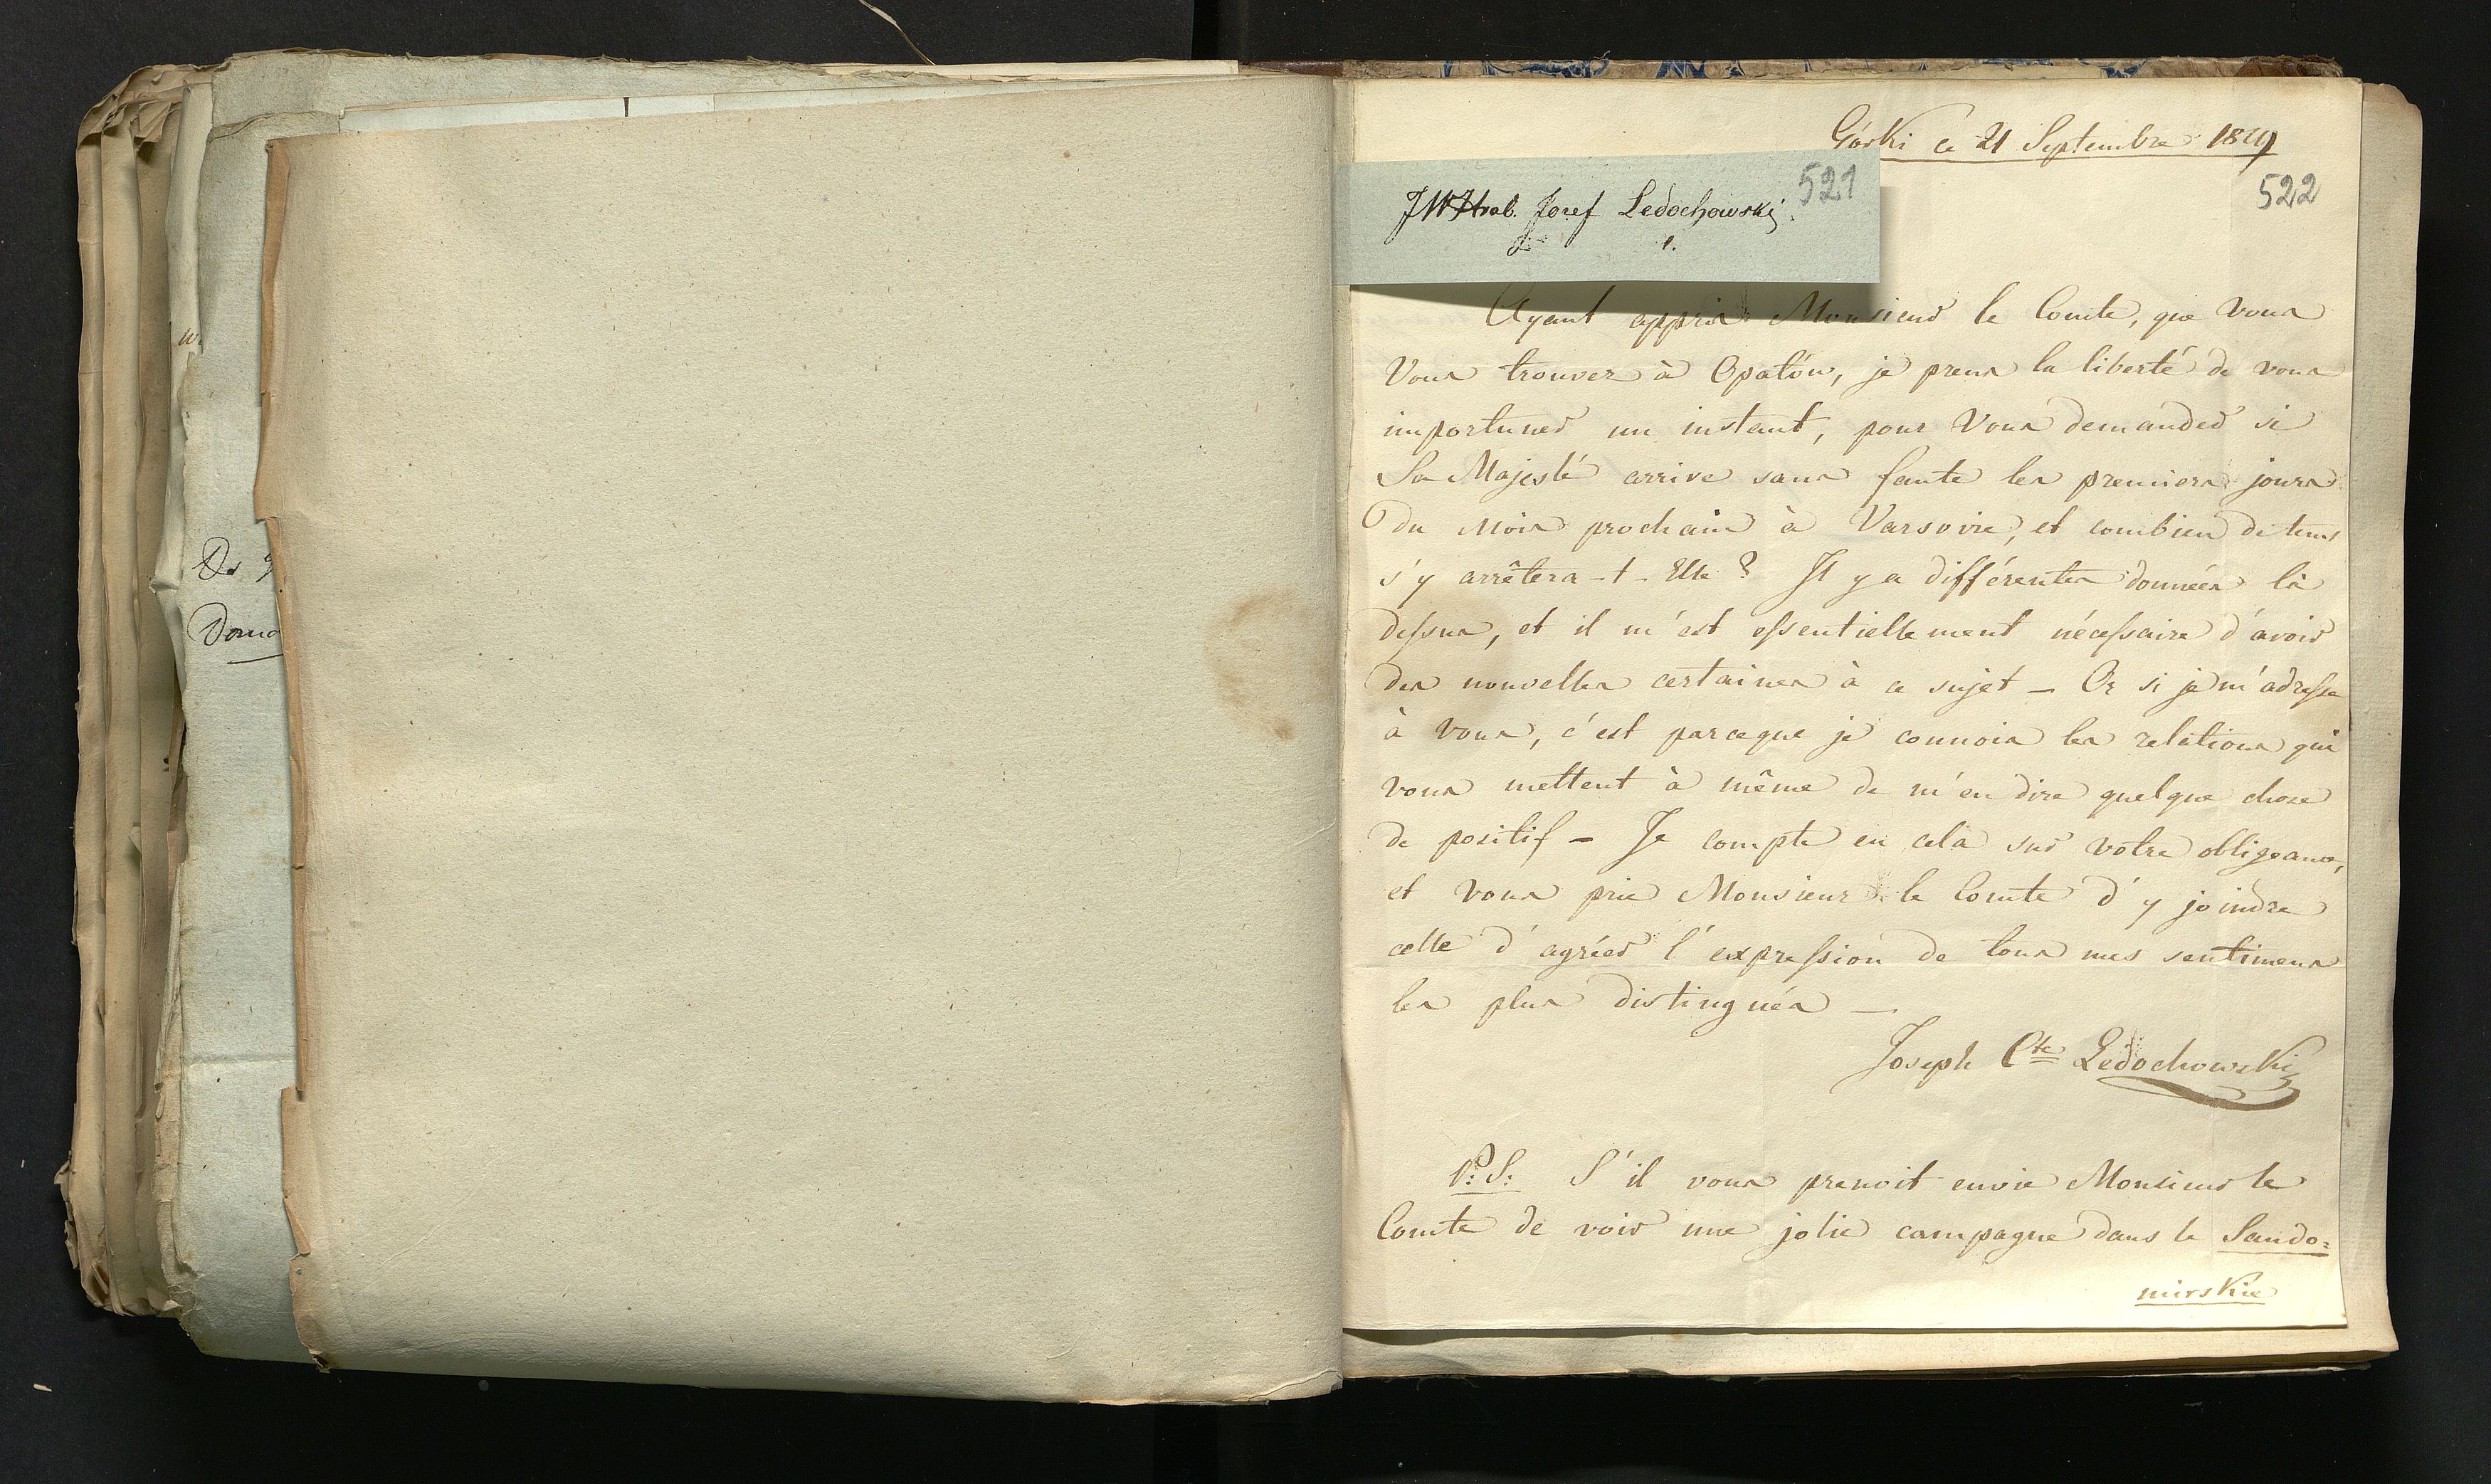 Górki ce 21 Septembre 1829
521
522
JW Hrab. Jozef Ledochowski
1.
Ayant appris Monsieur le Comte, que vous
Vous trouvez à Opatów, je prens la liberté de vous
importuner un instant, pour Vous demander si
Sa Majesté arrive sans faute les premiers jours
du mois prochain à Varsovie, et combien de tems
s'y arrêtera-t-Elle? Il y a différentes données là
dessus, et il m'est essentiellement nécessaire d'avoir
des nouvelles certaines à ce sujet – Or si je m'adresse
à vous, c'est parceque je connois les relations qui
vous mettent à même de m'en dire quelque chose
de positif – Je compte en cela sur votre obligeance,
et vous prie Monsieur le Comte d'y joindre
celle d'agréer l'expression de tous mes sentimens
les plus distingués –
Joseph Cte Ledochowski
P: S: S'il vous prenoit envie Monsieur le
Comte de voir une jolie campagne dans le Sando=
mirskie